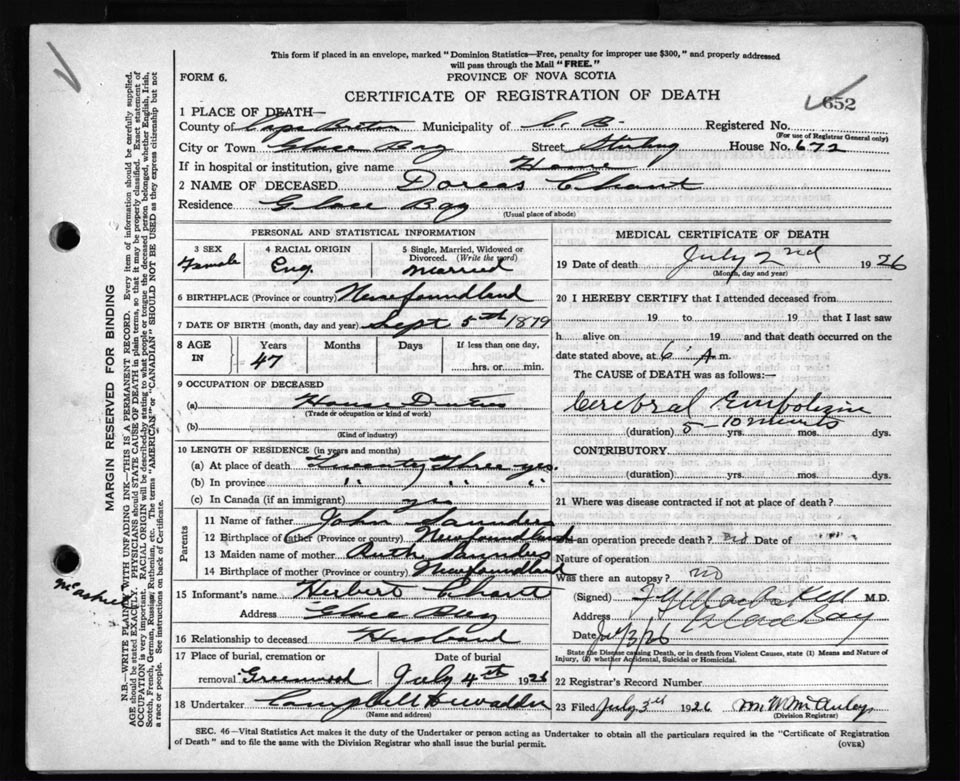 This form if placed in an envelope, marked "Dominion Statistics—Free, penalty for improper use $300," and properly addressed
will pass through the Mail "FREE."
FORM 6.
PROVINCE OF NOVA SCOTIA
CERTIFICATE OF REGISTRATION OF DEATH
652
1 PLACE OF DEATH—
County of Cape Breton Municipality of C. B. Registered No.
(For use of Registrar General only)
City or Town Glace Bay Street Sterling House No. 672
If in hospital or institution, give name Home
2 NAME OF DECEASED Dorcas Chant
Residence Glace Bay
(Usual place of abode)
PERSONAL AND STATISTICAL INFORMATION
3 SEX 4 RACIAL ORIGIN 5 Single, Married, Widowed or
Divorced. (Write the word)
Female Eng. Married
6 BIRTHPLACE (Province or country) Newfoundland
7 DATE OF BIRTH (month, day and year) Sept 5th 1879
8 AGE IN Years Months Days If less than one day,
47 hrs. or min.
9 OCCUPATION OF DECEASED
(a) House Duties
(Trade or occupation or kind of work)
(b)
(Kind of industry)
10 LENGTH OF RESIDENCE (in years and months)
(a) At place of death Twenty Three yrs.
(b) In province " " "
(c) In Canada (if an immigrant) yes
Parents
11 Name of father John Saunders
12 Birthplace of father (Province or country) Newfoundland
13 Maiden name of mother Ruth
14 Birthplace of mother (Province or country) Newfoundland
15 Informant's name Herbert Chant
Address Glace Bay
16 Relationship to deceased Husband
17 Place of burial, cremation or Date of burial
removal Greenwood July 4th 1926
18 Undertaker Campbell
(Name and address)
MEDICAL CERTIFICATE OF DEATH
19 Date of death July 2nd 1926
(Month, day and year)
20 I HEREBY CERTIFY that I attended deceased from
19 to 19 that I last saw
h alive on 19 and that death occurred on the
date stated above, at 6 A m.
The CAUSE of DEATH was as follows:—
Cerebral Embolism
(duration) 5-10 minuts yrs. mos. dys.
CONTRIBUTORY
(duration) yrs. mos. dys.
21 Where was disease contracted if not at place of death?
Did an operation precede death? no Date of
Nature of operation
Was there an autopsy? no
(Signed) M.D.
Address Glace Bay
Date Jul 3/26
State the Disease causing Death, or in death from Violent Causes, state (1) Means and Nature of
Injury, (2) whether Accidental, Suicidal or Homicidal.
22 Registrar's Record Number
23 Filed July 3rd 1926 McAuley
(Division Registrar)
SEC. 46—Vital Statistics Act makes it the duty of the Undertaker or person acting as Undertaker to obtain all the particulars required in the "Certificate of Registration
of Death" and to file the same with the Division Registrar who shall issue the burial permit.
(OVER)
MARGIN RESERVED FOR BINDING
N.B.—WRITE PLAINLY WITH UNFADING INK—THIS IS A PERMANENT RECORD. Every item of information should be carefully supplied.
AGE should be stated EXACTLY. PHYSICIANS should STATE CAUSE OF DEATH in plain terms, so that it may be properly classified. Exact statement of
OCCUPATION is very important. RACIAL ORIGIN will be described by stating to what people or tongue the deceased person belonged, whether English, Irish,
Scotch, French, German, Russian, Ruthenian, etc. The terms "AMERICAN" or "CANADIAN" SHOULD NOT BE USED as they express citizenship but not
a race or people. See instructions on back of Certificate.